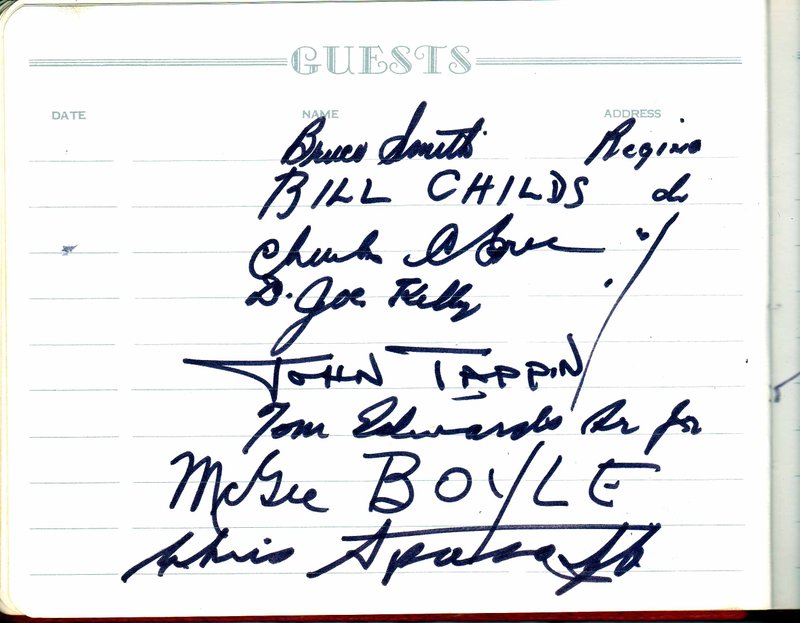 GUESTS
DATE NAME ADDRESS
Bruce Smith Regina
BILL CHILDS do
Chuck "
D. Joe Kelly "
JOHN TAPPIN
Tom Edwards Sr for
McGee BOYLE
Chris